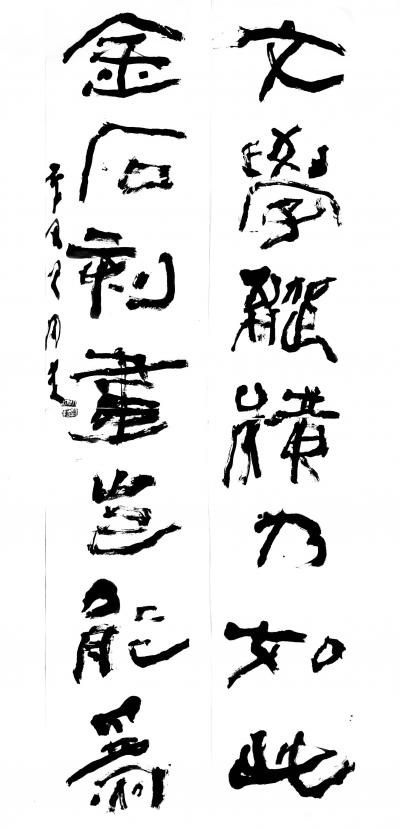 文學縱橫乃如此
金石刻畫豈能爲